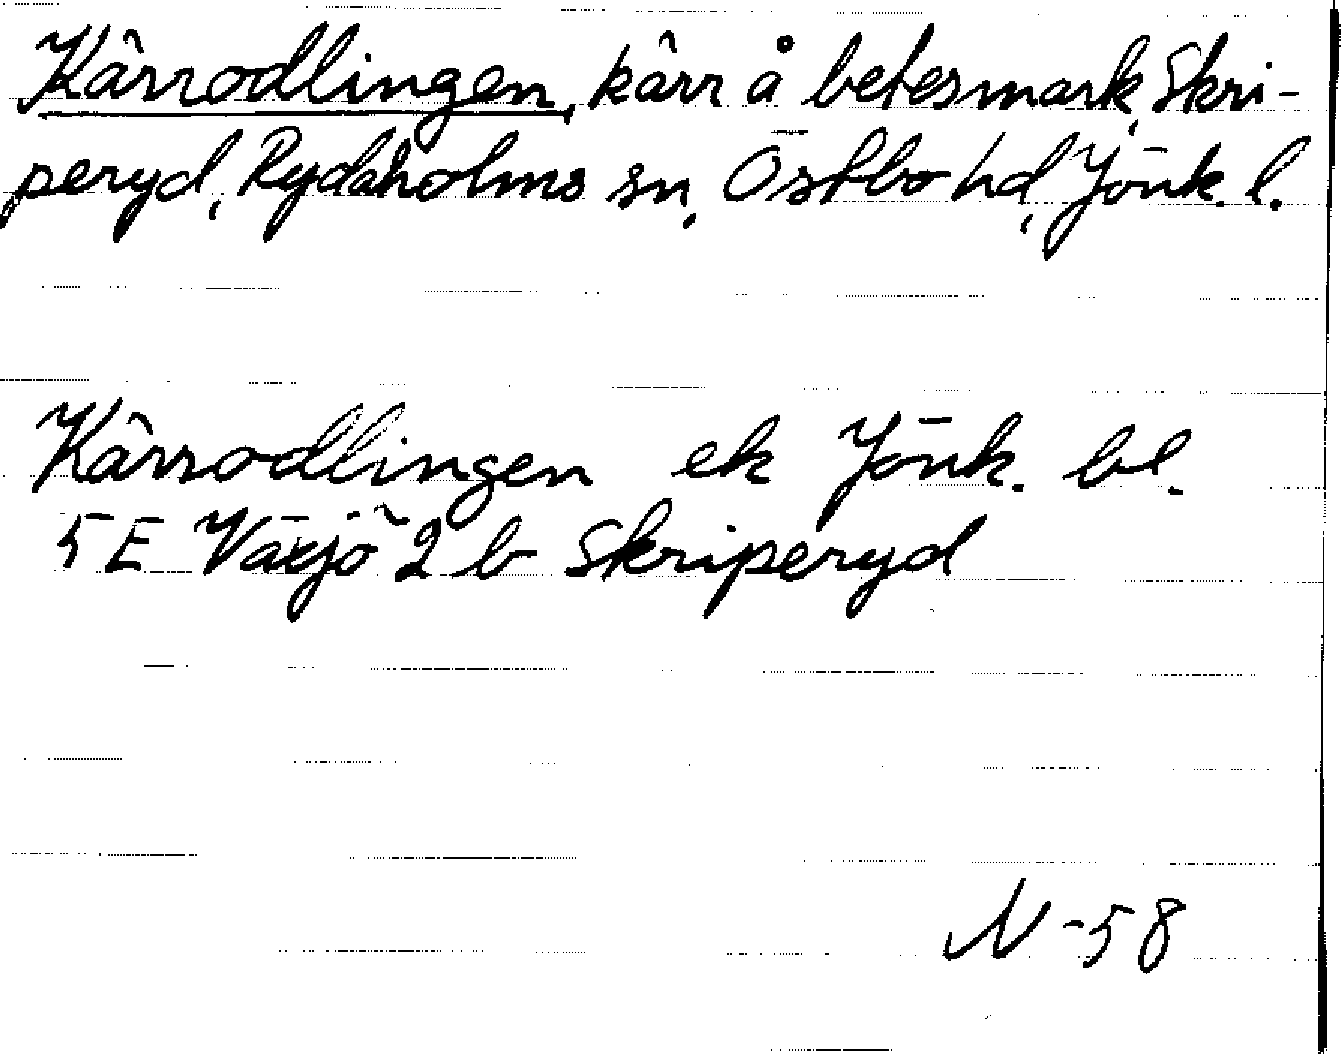 Kärrodlingen, kärr å betesmark, Skri-
peryd, Rydaholms sn, Östbo hd, Jönk. l.
Kärrodlingen ek Jönk. bl.
5 E Växjö 2 b Skriperyd
N -58